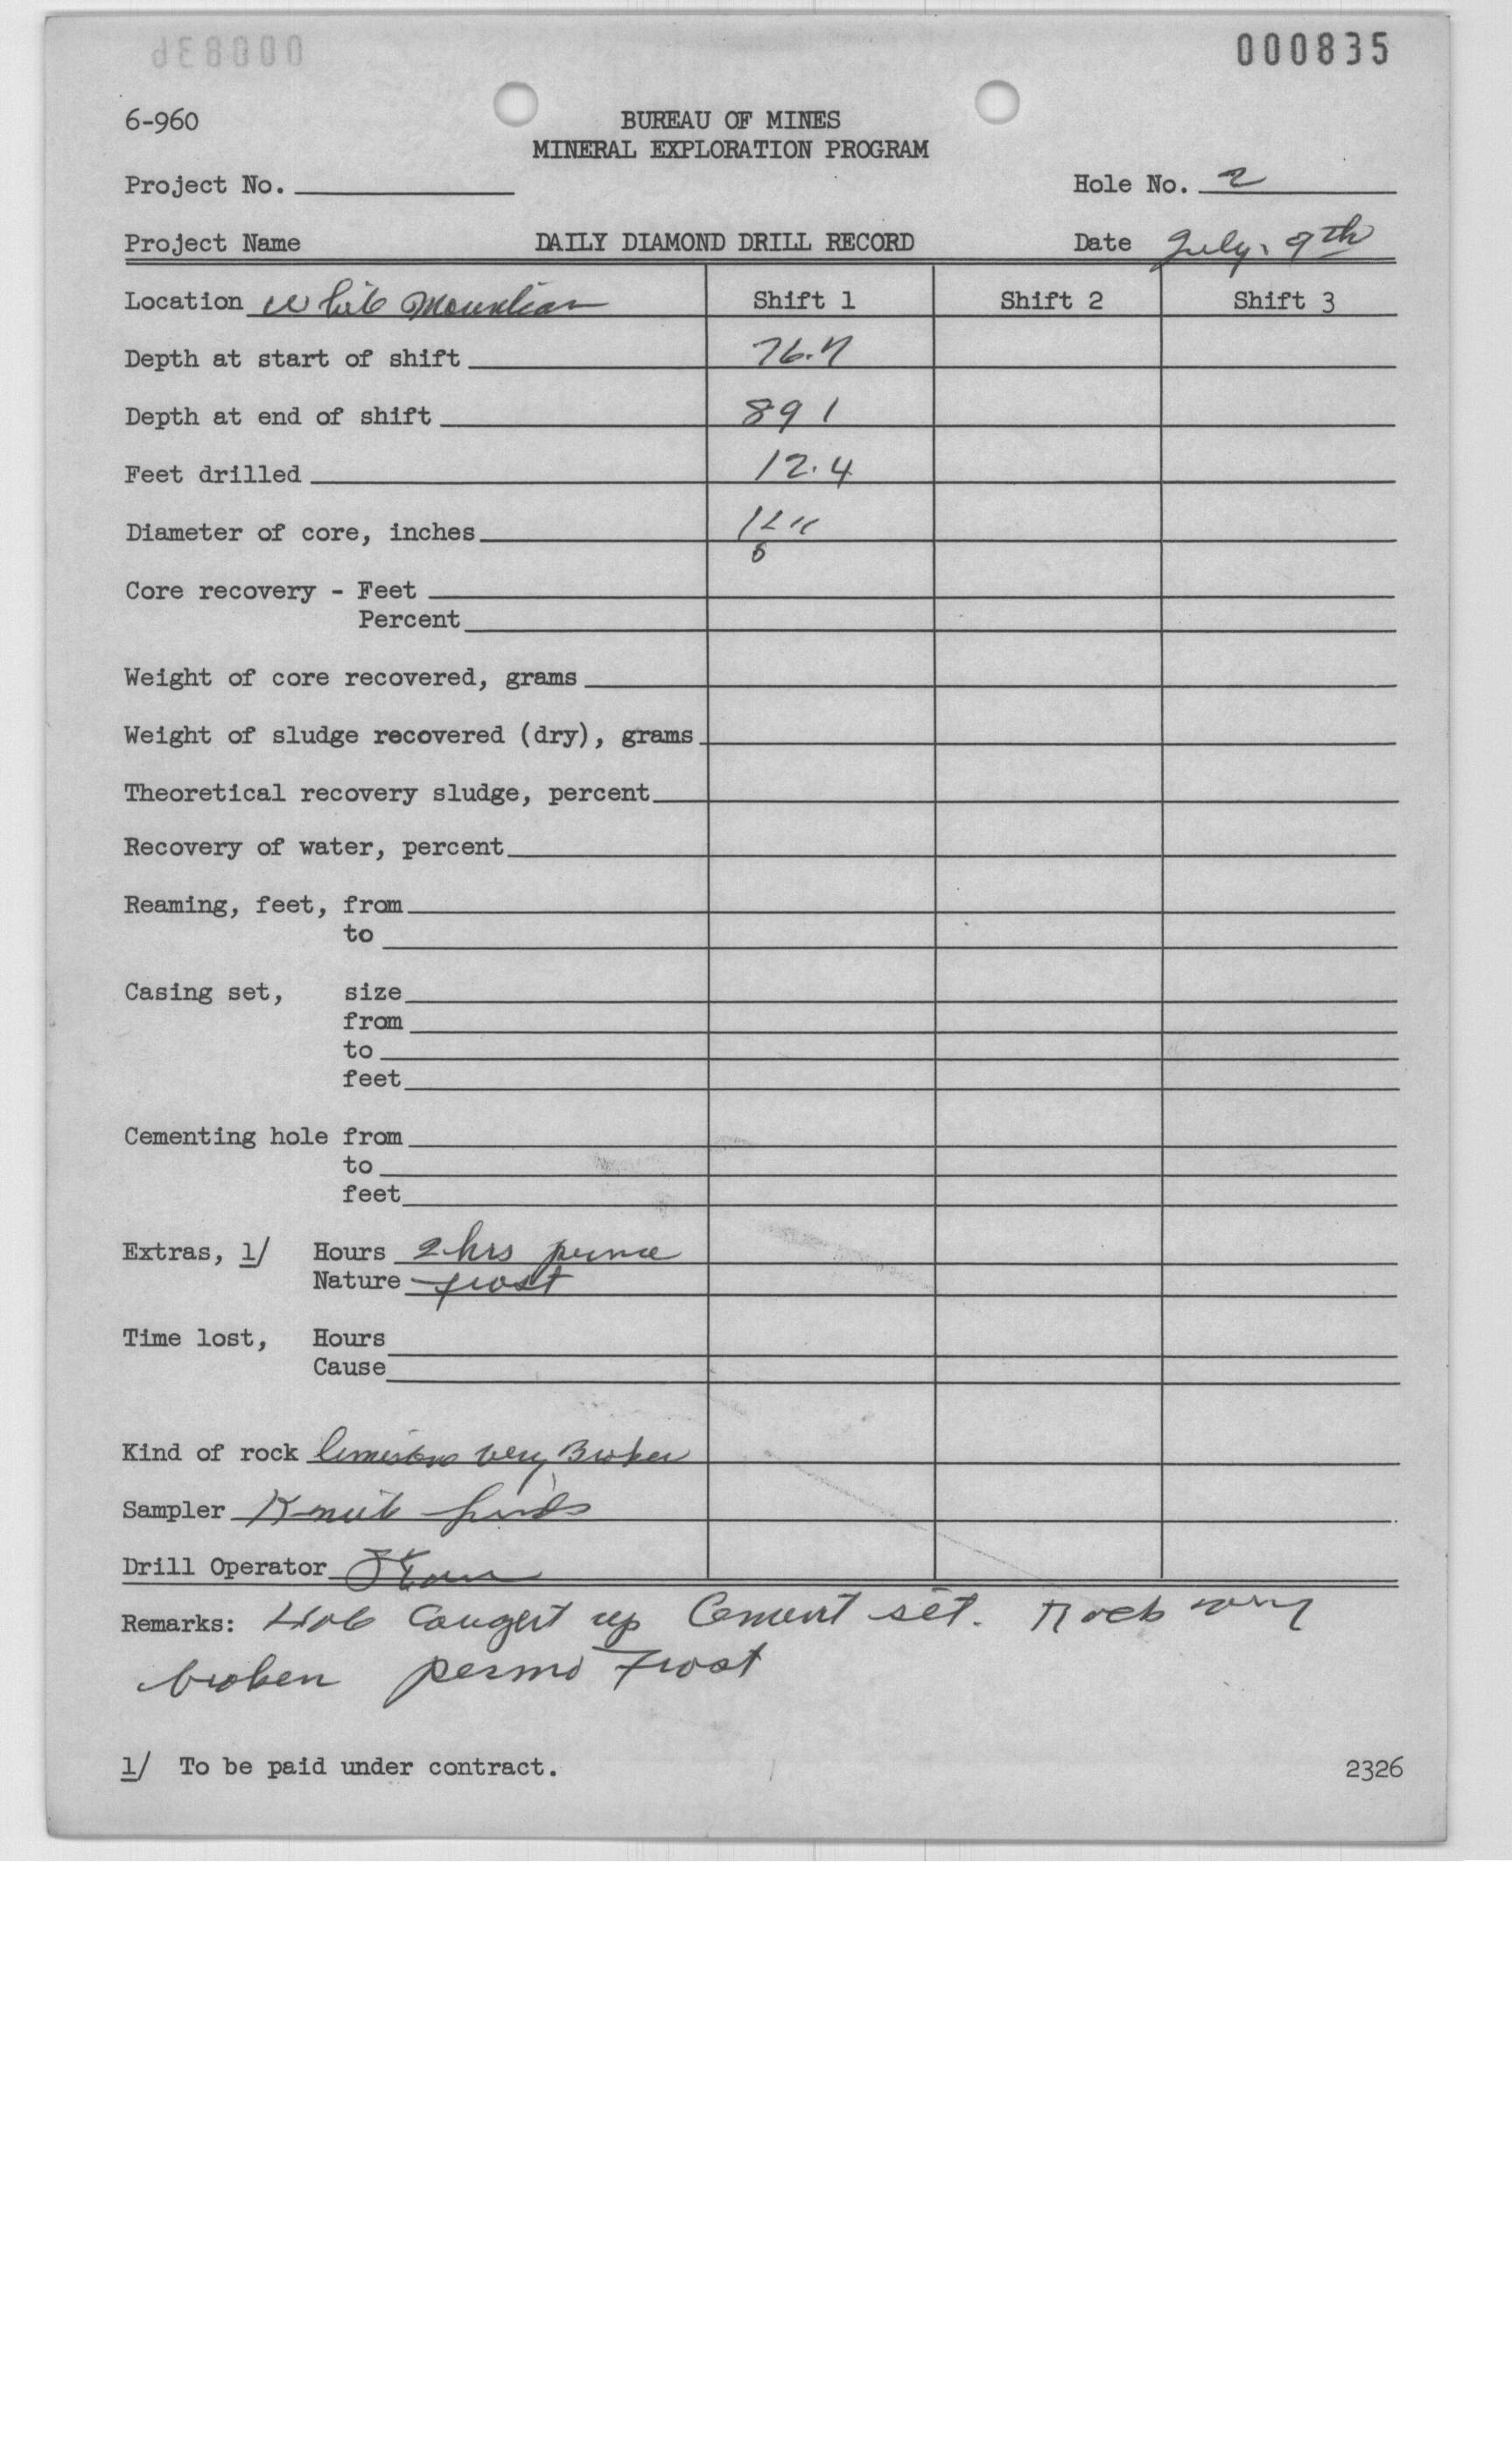 000835
6-960
BUREAU OF MINES
MINERAL EXPLORATION PROGRAM
Project No.
Hole No. 2
Project Name DAILY DIAMOND DRILL RECORD Date July, 9th
Location White Mountian Shift 1 Shift 2 Shift 3
Depth at start of shift 76.7
Depth at end of shift 89 1
Feet drilled 12.4
Diameter of core, inches
Core recovery - Feet
Percent
Weight of core recovered, grams
Weight of sludge recovered (dry), grams
Theoretical recovery sludge, percent
Recovery of water, percent
Reaming, feet, from
to
Casing set, size
from
to
feet
Cementing hole from
to
feet
Extras, 1/ Hours 2 hrs
Nature frost
Time lost, Hours
Cause
Kind of rock limestone very Broken
Sampler
Drill Operator
Remarks: Caugert up Cement set. Rock very
broken permo Frost
1/ To be paid under contract.
2326